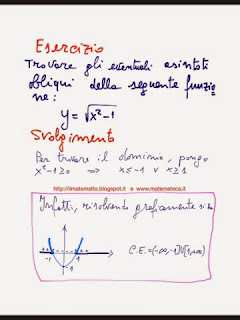 Esercizio
Trovare gli eventuali asintoti
obliqui della seguente funzio
ne:
y = √x²-1
Svolgimento
Per trovare il dominio, pongo
x²-1≥0 ⇒ x≤-1 ∨ x≥1
http://imatematto.blogspot.it e www.matematica.it
Infatti, risolvendo graficamente si ha
+ + - - + +
-1 1
-1
C.E.=(-∞,-1]∪[1,+∞)